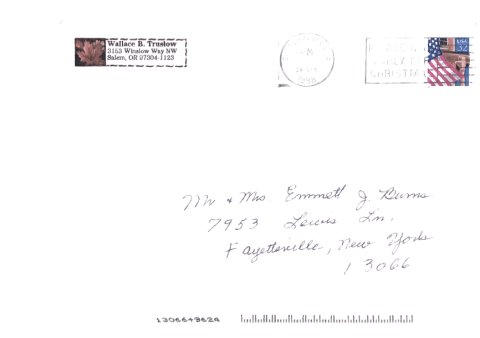 Wallace B. Truslow
3153 Winslow Way NW
Salem, OR 97304-1123
1996
CHRISTMAS
USA 32
Mr & Mrs. Emmett J. Burns
7953 Lewis Ln.
Fayetteville, New York
13066
13066+9624